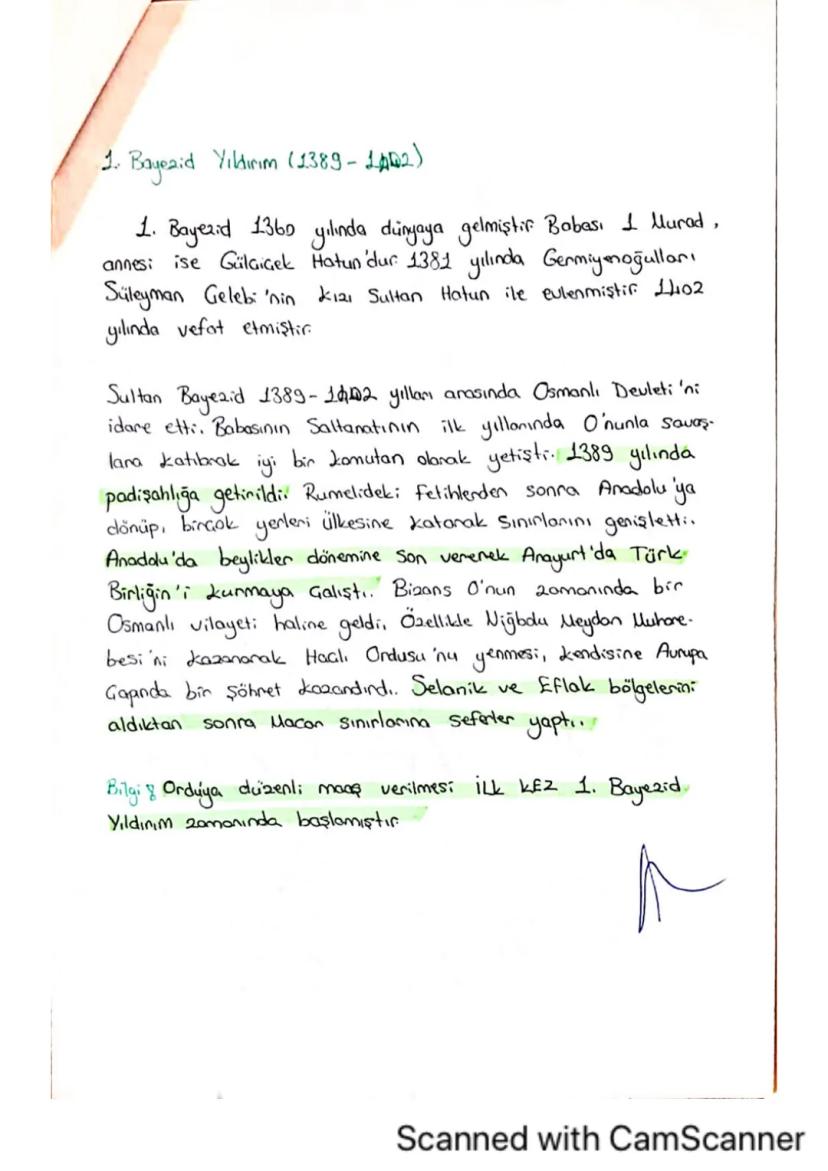 1. Bayezid Yıldırım (1389 - 1402)
1. Bayezid 1360 yılında dünyaya gelmiştir Babası 1 Murad,
annesi ise Gülçiçek Hatun'dur 1381 yılında Germiyenoğulları
Süleyman Çelebi'nin kızı Sultan Hatun ile evlenmiştir 1402
yılında vefat etmiştir
Sultan Bayezid 1389-1402 yılları arasında Osmanlı Devleti'ni
idare etti. Babasının Saltanatının ilk yıllarında O'nunla savaş-
lara katılarak iyi bir komutan olarak yetişti. 1389 yılında
padişahlığa getirildi. Rumelideki Fetihlerden sonra Anadolu'ya
dönüp, birçok yerleri ülkesine katarak sınırlarını genişletti.
Anadolu'da beylikler dönemine son vererek Anayurt'da Türk
Birliğin'i kurmaya çalıştı. Bizans O'nun zamanında bir
Osmanlı vilayeti haline geldi, Özellikle Niğbolu Meydan Muhare-
besi'ni kazanarak Haçlı Ordusu'nu yenmesi, kendisine Avrupa
Çapında bir şöhret kazandırdı. Selanik ve Eflak bölgelerini
aldıktan sonra Macar sınırlarına seferler yaptı.
Bilgi : Ordu'ya düzenli maaş verilmesi İLK KEZ 1. Bayezid
Yıldırım zamanında başlamıştır
Scanned with CamScanner